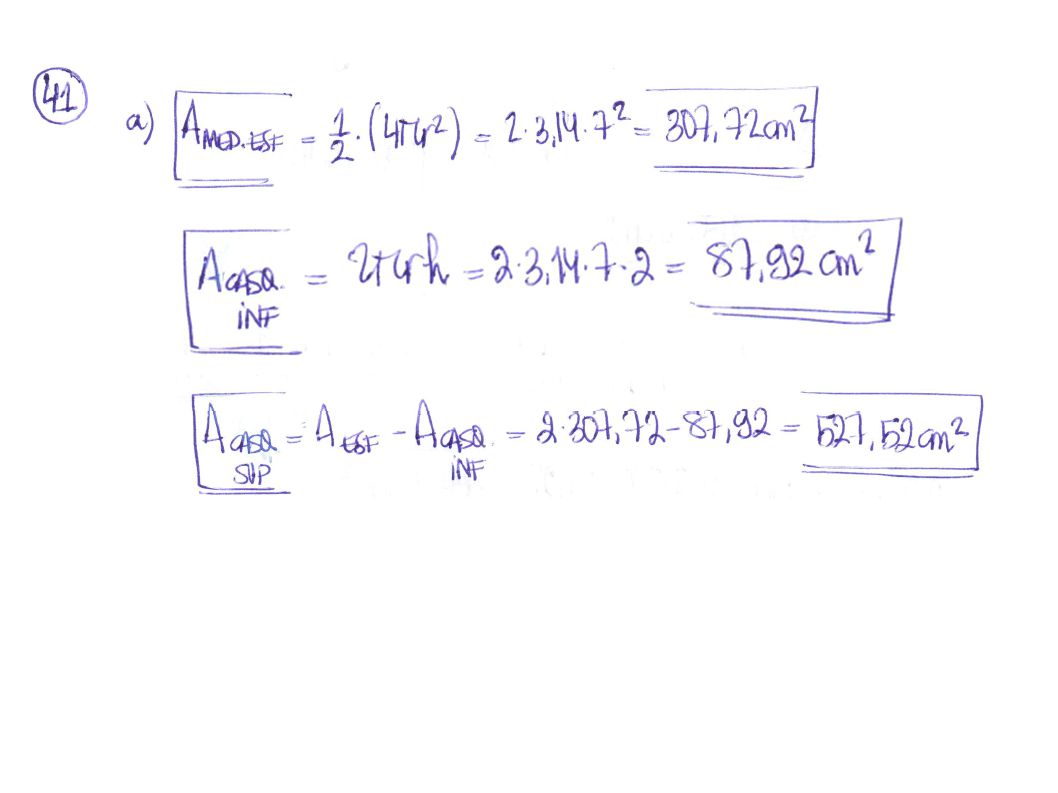 41
a) A MED. ESF = 1/2 · (4πr²) = 2·3,14·7² = 307,72 cm²
A CASQ. INF = 2πrh = 2·3,14·7·2 = 87,92 cm²
A CASQ SUP = A ESF - A CASQ. INF = 2·307,72-87,92 = 527,52 cm²